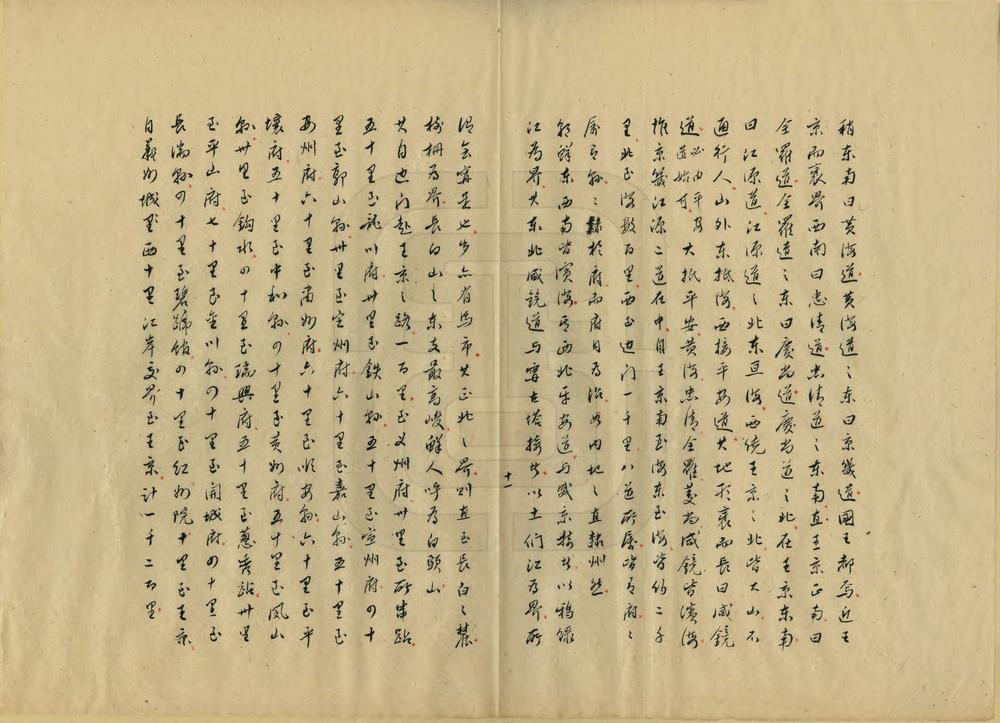 稍东南曰黄海道黄海道之东曰京畿道國王都焉近王
京而襄界西南曰忠清道忠清道之东南直王京正南曰
全羅道全羅道之东曰慶尚道慶尚道之北在王京东南
曰江源道江源道之北东亘海西绕王京之北皆大山不
通行人山外东抵海西接平安道大地形襄而長曰咸鏡
道必由平安道始可大抵平安黄海忠清全羅慶尚咸鏡皆濱海
惟京畿江源二道在中自王京南至海东至海皆约二千
里北至海数百里西至边门一千里八道所属皆有府之
属有縣之隸於府而府自為治如内地之直隸州然
朝鲜东西南皆濱海而西北平安道与盛京接界以鸭绿
江为界其东北咸鏡道与宁古塔接界以土们江为界所
十一
谓会宁是也岁亦有馬市其正北之界则直至長白之麓
樹柵为界長白山之东支最高峻鲜人呼为白頭山
其自边门赴王京之路一百里至义州府卅里至所串站
五十里至龍川府卅里至鉄山縣五十里至宣州府四十
里至郭山縣卅里至定州府六十里至嘉山縣五十里至
安州府六十里至肅州府六十里至順安縣六十里至平
壤府五十里至中和縣四十里至黄州府五十里至凤山
縣卅里至鈎水四十里至瑞興府五十里至葱秀站卅里
至平山府七十里至金川縣四十里至開城府四十里至
長湍縣四十里至碧蹄館四十里至红州院十里至王京
自義州城里西十里江岸交界至王京计一千二百里